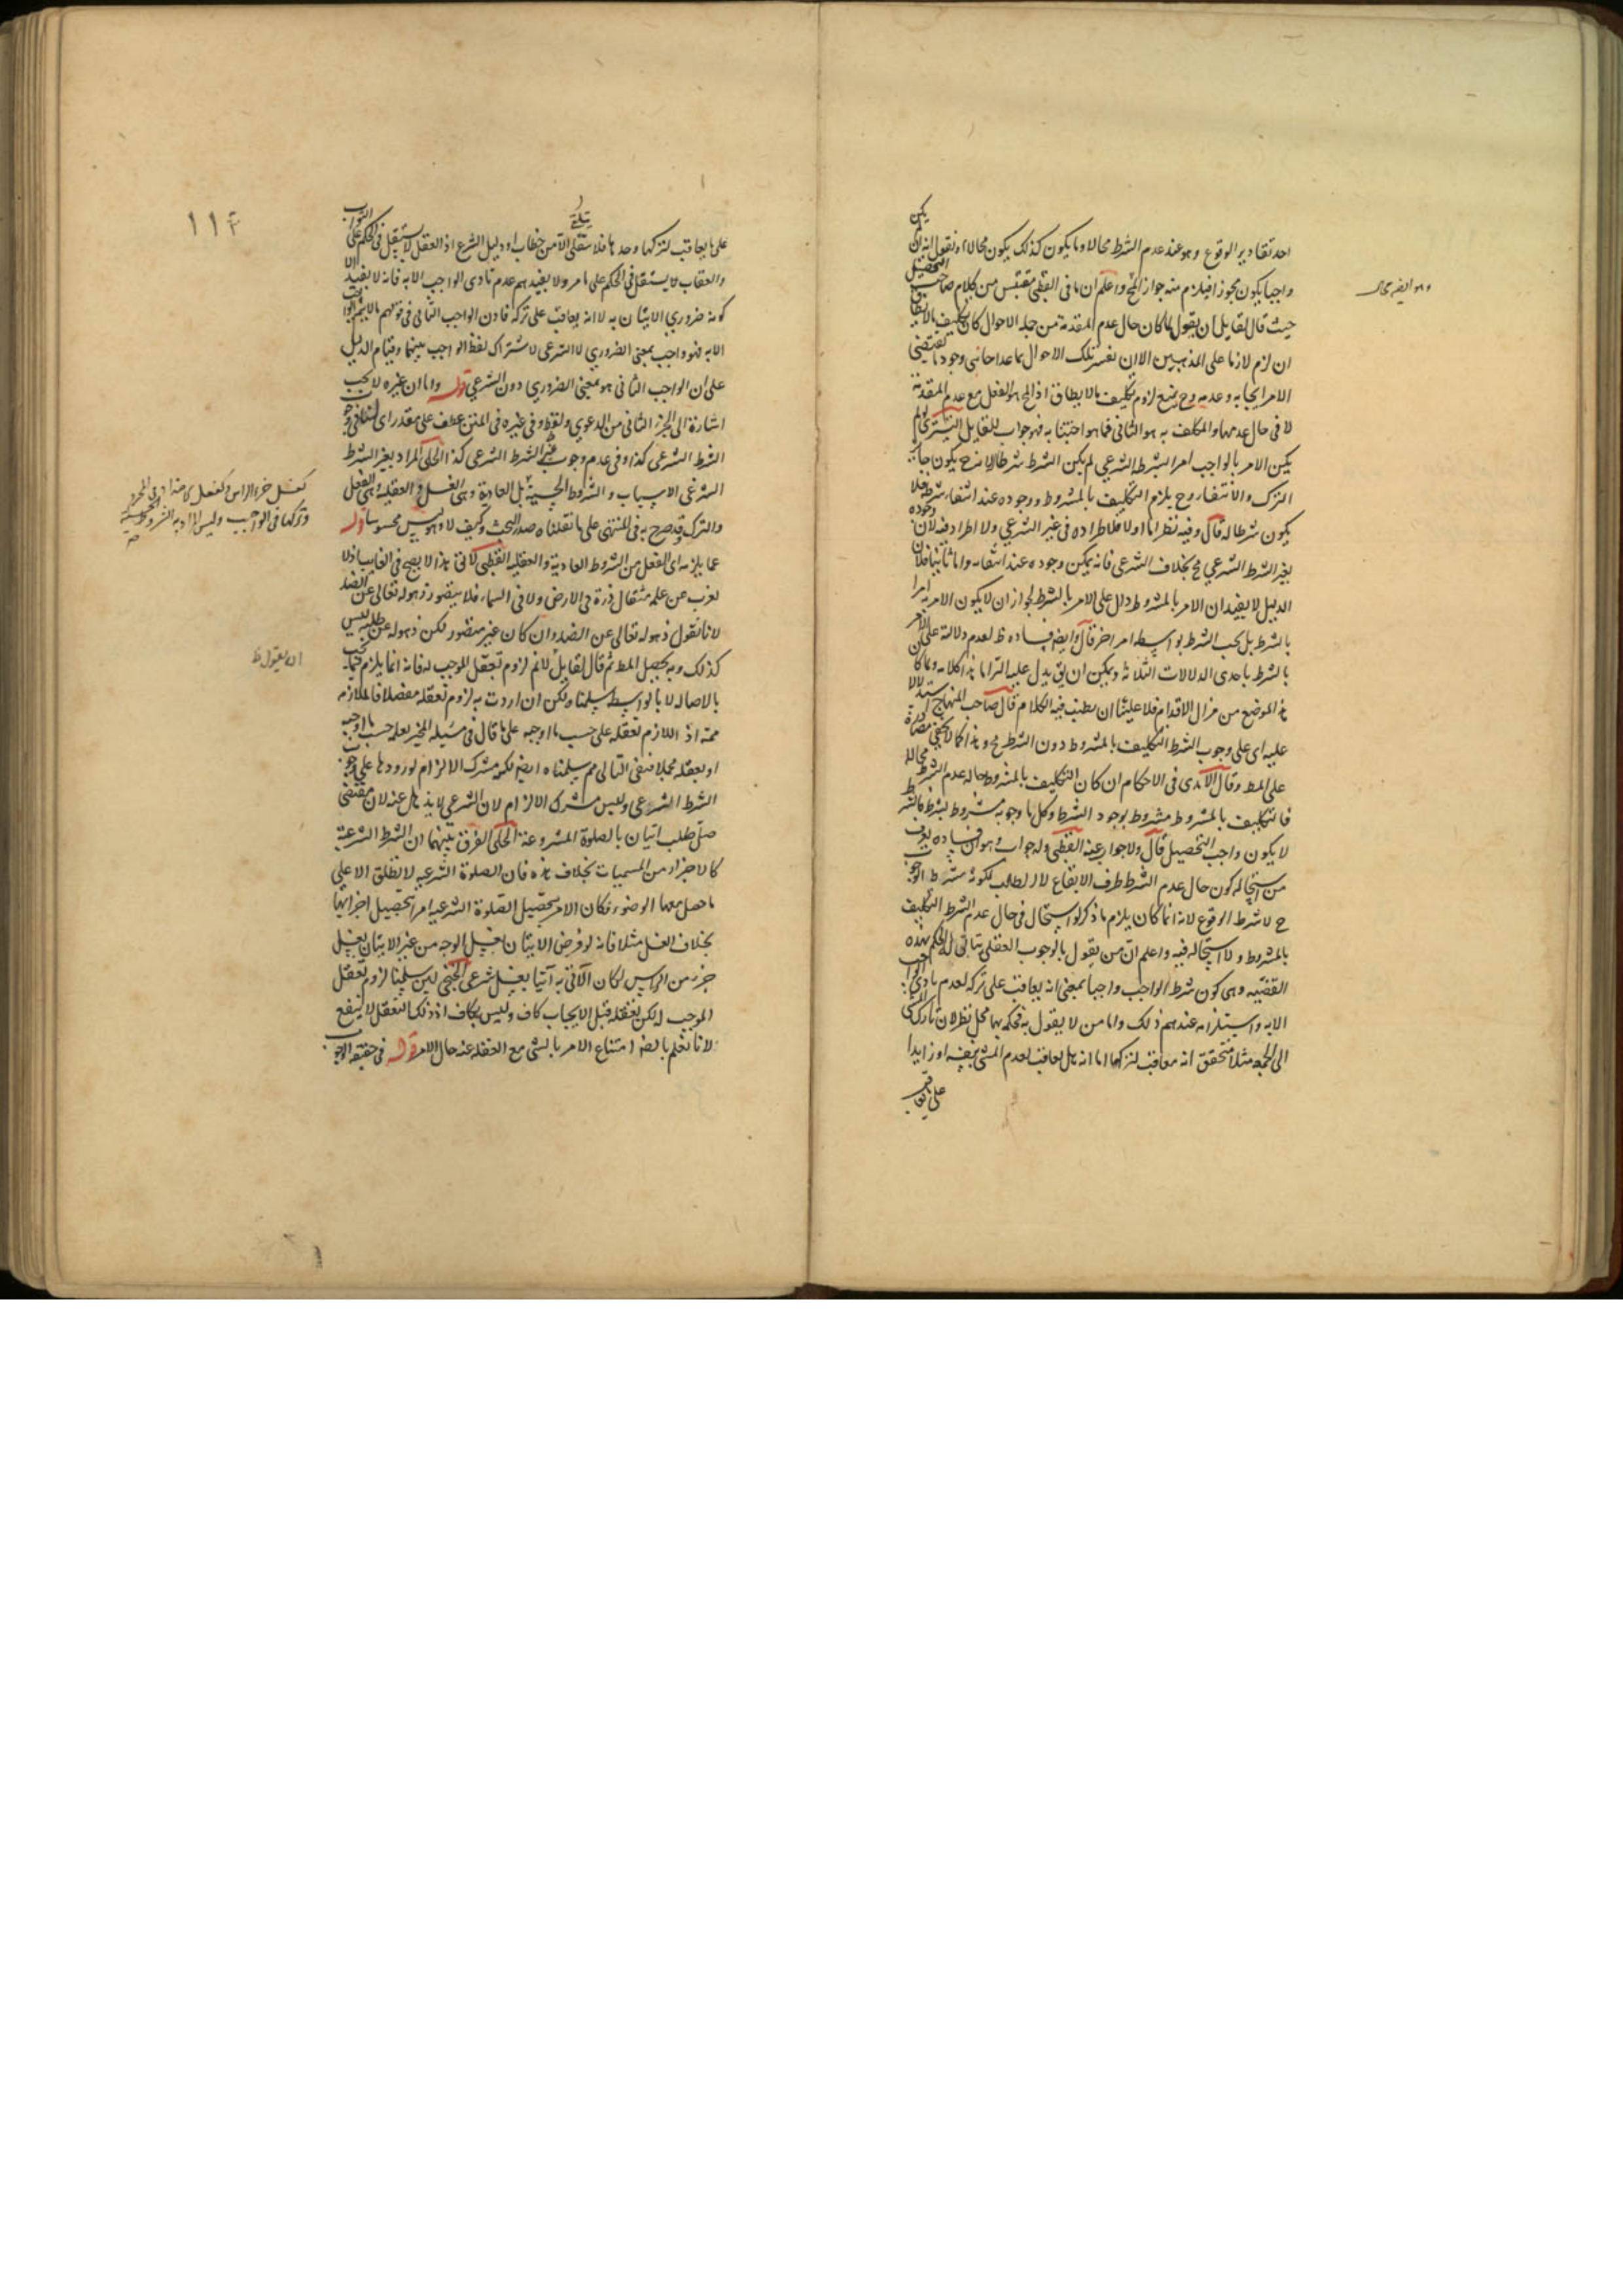 احد تقادير الوقوع وهو عند عدم الشرط محالا وما يكون كذلك يكون محالا او نقول انه ان لم يكن
واجبا يكون مجوز فيلزم منه جواز المح واعلم ان ما في القطبى مقتبس من كلام صاحب التحصيل
حيث قال لقايل ان يقول لما كان حال عدم المقدمة من جملة الاحوال كان تكليف بالايطاق
ان لزم لازما على المذهبين الا ان نفسر تلك الاحوال بما عدا حالتى وجود ما يقتضى
الامر ايجابه وعدمه وح يمنع لزوم تكليف بالايطاق اذ المح هو الفعل مع عدم المقدمة
لا في حال عدمها والمكلف به هو الثانى فما هو اجبنا به فهو جواب للقايل التسترى لو لم
يكن الامر بالواجب امرا بشرطه الشرعي لم يكن الشرط شرطا لانه ح يكون جايز
الترك والانتفاء وح يلزم التكليف بالمشروط ووجوده عند انتفاء شرطه فلا
يكون شرطا له قال وفيه نظر اما اولا فلاطراده فى غير الشرعي ولا اطراد فيه لان وجوده
بغير الشرط الشرعي مح بخلاف الشرعى فانه يمكن وجوده عند انتفائه واما ثانيا فلان
الدليل لا يفيد ان الامر بالمشروط دال على الامر بالشرط لجواز ان لا يكون الامر به امرا
بالشرط بل يجب الشرط بواسطه امر اخر قال وايضه فساده ظ لعدم دلالة على الامر
بالشرط باحدى الدلالات الثلاثة ويمكن ان يق يدل عليه التزاما هذا كلامه ولما كان
هذا الموضع من مزال الاقدام فلا علينا ان نطنب فيه الكلام قال صاحب المنهاج استدلالا
عليه اى على وجوب الشرط التكليف بالمشروط دون الشرط مح وهذا كما لا يخفى مصادرة
على المط وقال الآمدى فى الاحكام ان كان التكليف بالمشروط حالة عدم الشرط محالا
فالتكليف بالمشروط مشروط بوجود الشرط وكل ما وجوبه مشروط بشرط فالشرط
لا يكون واجب التحصيل قال ولا جواب عنه القطبى وله جواب وهو ان فساده يعرف
من استحالة كون حال عدم الشرط ظرف الايقاع لا الطلب لكونه شرط الوجوب
ح لا شرط الوقوع لانه انما كان يلزم ما ذكر لو استحال فى حال عدم الشرط التكليف
بالمشروط ولا استحالة فيه واعلم ان من يقول بالوجوب العقلى يتاتى له الحكم بهذه
القضيه وهى كون شرط الواجب واجبا بمعنى انه يعاقب على تركه لعدم تادى الواجب
الا به واستلزامه عندهم ذلك واما من لا يقول به فحكمه بها محل نظر لان تارك المشى
الى الجمعه مثلا متحقق انه معاقب لتركها اما انه هل يعاقب لعدم المشى بعينه او زايدا
على يعاقب
وهو ايضه محال
١١٤
على ما يعاقب لتركها وحدها فلا يتلقى الا من خطاب او دليل الشرع اذ العقل لا يستقل فى الحكم على الثواب
والعقاب لا يستقل فى الحكم على ما مر ولا يفيدهم عدم تادى الواجب الا به فانه لا يفيد الا
كونه ضرورى الاتيان به لا انه يعاقب على تركه فاذن الواجب الثانى فى قولهم ما لا يتم الواجب
الا به فهو واجب بمعنى الضرورى لا الشرعى لاشتراك لفظ الواجب بينهما وقيام الدليل
على ان الواجب الثانى هو بمعنى الضرورى دون الشرعى قوله واما ان غيره لا يجب
اشارة الى الجزء الثانى من الدعوى ولفظ وفى غيره فى المتن عطف على مقدر اى لنا فى وجوب
الشرط الشرعى كذا وفى عدم وجوب غير الشرط الشرعى كذا الحلى المراد بغير الشرط
الشرعى الاسباب والشروط الحسية بل العادية وهى الغسل والعقلية وهى الفعل
والترك وقد صرح به فى المنتهى على ما نقلناه صدر البحث وكيف لا وهو ليس محسوسا قوله
عما يلزمه اى الفعل من الشروط العادية والعقليه القطبى لا فى هذا لا يصح فى الغايب اذ لا
يعزب عن علمه مثقال ذرة فى الارض ولا فى السماء فلا يتصور ذهوله تعالى عن الضد
لانا نقول ذهوله تعالى عن الضد وان كان غير متصور لكن ذهوله عن طلبه ليس
كذلك وبه يحصل المط ثم قال لقايل لانم لزوم تعقل الموجب له فانه انما يلزم فيما يجب
بالاصاله لا بالواسطه سلمنا ولكن ان اردت به لزوم تعقله مفصلا فالملازمه
ممة اذ اللازم تعقله على حسب ما اوجبه على ما قال فى مسيله المخير يعلمه حسب ما اوجبه
او بعقله مجملا فنفى التالى مم سلمناه ايضه لكنه مشترك الالزام لورودها على وجوب
الشرط الشرعى وليس مشترك الالزام لان الشرعى لا يذهل عنه لان مقتضى
صل طلب اتيان بالصلوة المشروعة الحلى الفرق بينهما ان الشرط الشرعية
كالاجزاء من المسميات بخلاف هذه فان الصلوة الشرعيه لا تطلق الا على
ما حصل معها الوضوء فكان الامر بتحصيل الصلوة الشرعيه امرا بتحصيل اجزائها
بخلاف الغسل مثلا فانه لو فرض الاتيان بغسل الوجه من غير الاتيان بغسل
جزء من الراس لكان الآتى به آتيا بغسل شرعى الخنجى لئن سلمنا لزوم تعقل
الموجب له لكن تعقله قبل الايجاب كاف وليس بكاف اذ ذلك التعقل لا ينفع
لانا نعلم بالضه امتناع الامر بالشى مع الغفله عنه حال الامر قوله فى حقيقه الوجوب
كغسل جزء الراس
وتركها فى الواجب وليس المراد به الشروط الحسية
ان يقول ظ